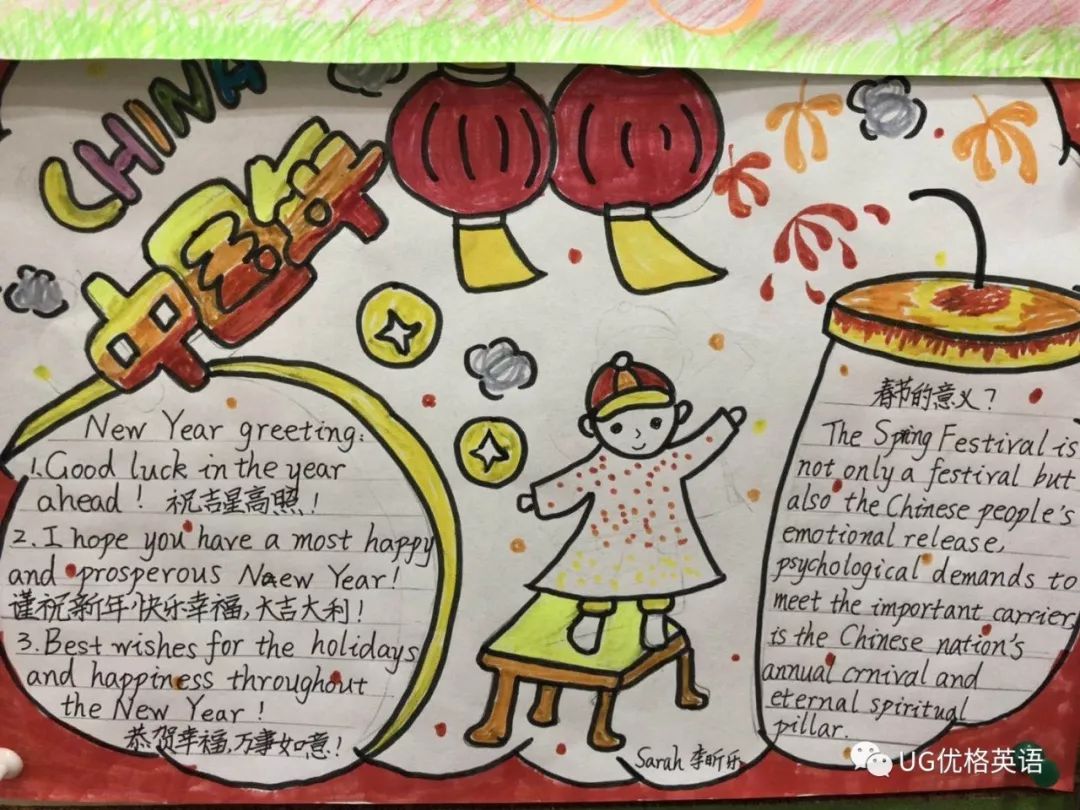 CHINA
中国年
New Year greeting:
1.Good luck in the year
ahead! 祝吉星高照!
2.I hope you have a most happy
and prosperous Naew Year!
谨祝新年,快乐幸福,大吉大利!
3.Best wishes for the holidays
and happiness throughout
the New Year!
恭贺幸福,万事如意!
春节的意义?
The Spring Festival is
not only a festival but
also the Chinese people's
emotional release,
psychological demands to
meet the important carrier,
is the Chinese nation's
annual crnival and
eternal spiritual
pillar.
Sarah 李昕乐
UG优格英语